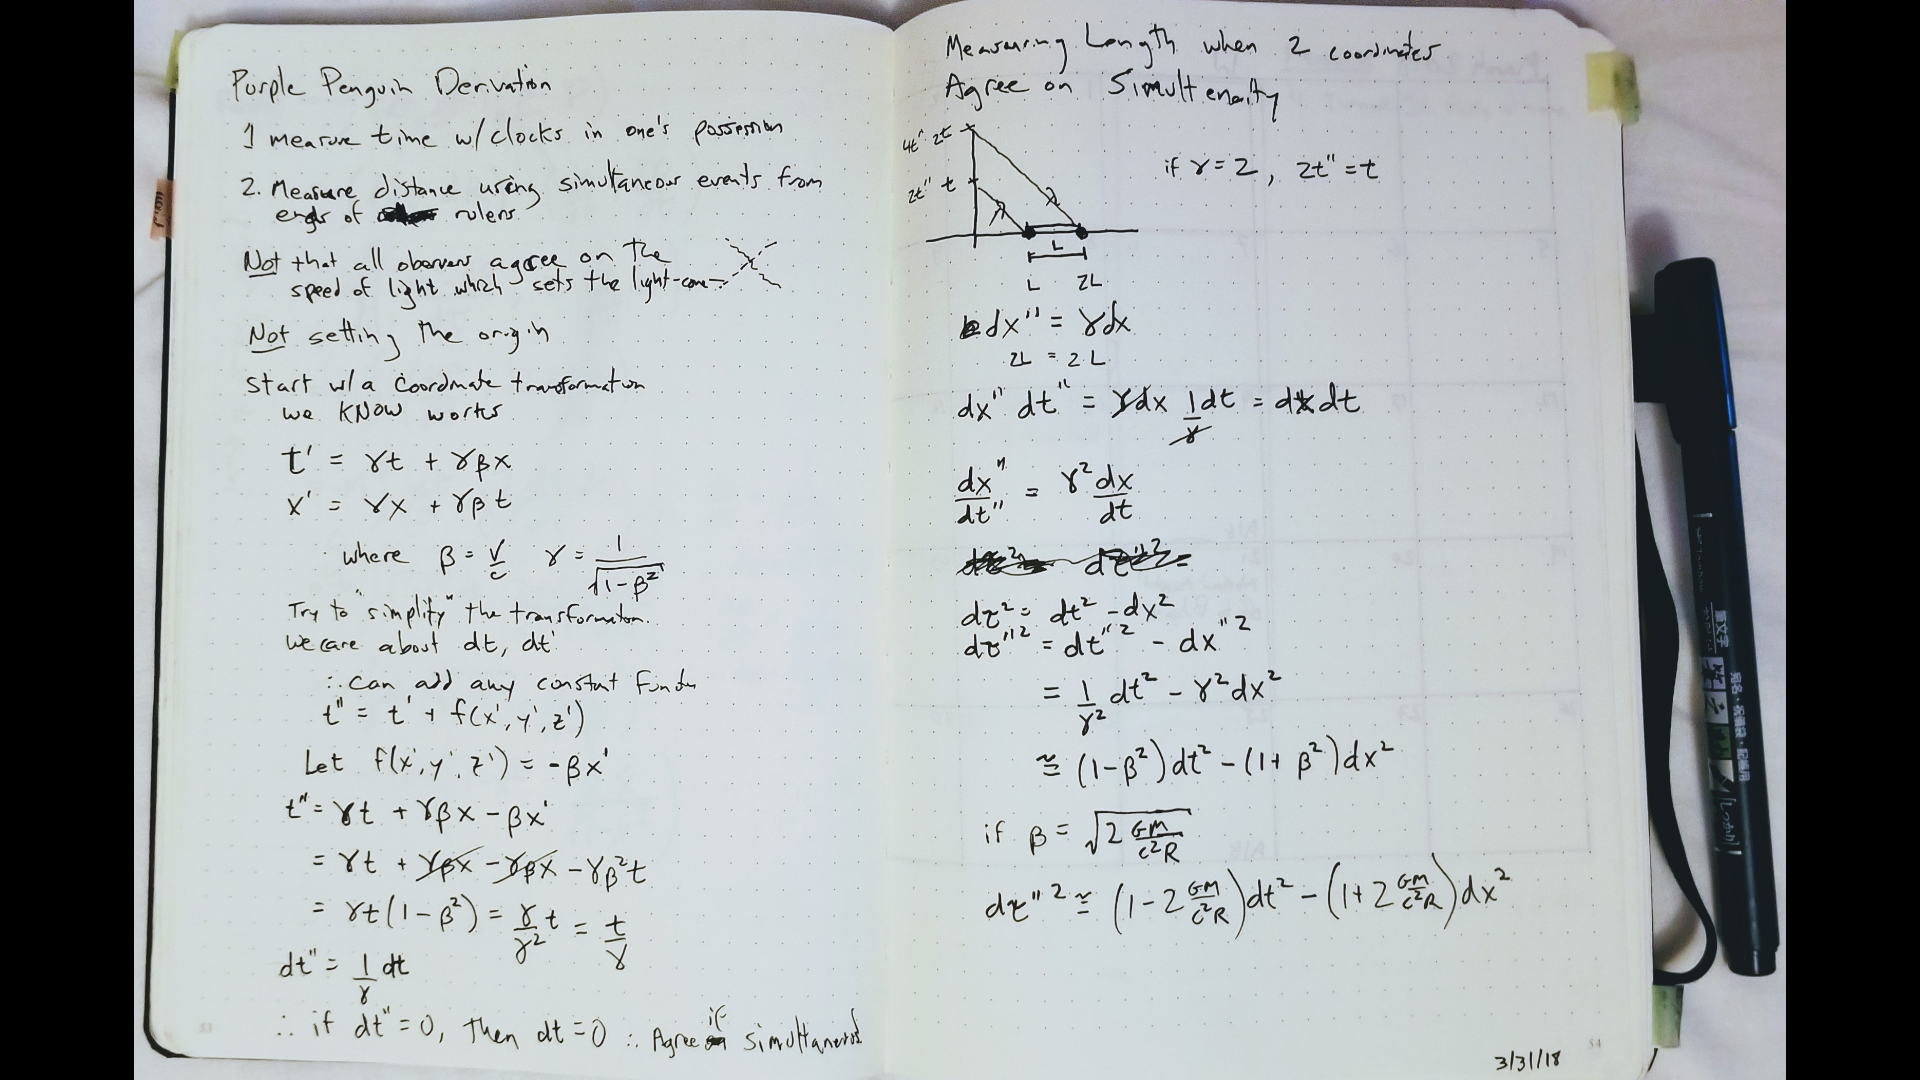 Purple Penguin Derivation
1 measure time w/clocks in one's possession
2. Measure distance using simultaneous events from
ends of rulers
Not that all observers agree on the
speed of light which sets the light-cone
Not setting the origin
Start w/a coordinate transformation
we KNOW works
t' = γt + γβx
x' = γx + γβt
where β = v/c γ = 1/√(1-β²)
Try to "simplify" the transformation.
We care about dt, dt'
∴ can add any constant
t" = t' + f(x', y', z')
Let f(x', y', z') = -βx'
t" = γt + γβx - βx'
= γt + γβx - γβx - γβ²t
= γt(1-β²) = γ/γ² t = t/γ
dt" = 1/γ dt
∴ if dt" = 0, then dt = 0 ∴ Agree if simultaneous
53
Measuring Length when 2 coordinates
Agree on Simulteneity
4t" 2t
2t" t
λ λ
if γ = 2, 2t" = t
L
L 2L
dx" = γdx
2L = 2 L
dx" dt" = γdx 1/γ dt = dx dt
dx"/dt" = γ² dx/dt
dτ² = dt² - dx²
dτ"² = dt"² - dx"²
= 1/γ² dt² - γ² dx²
≅ (1-β²)dt² - (1+β²)dx²
if β = √(2 GM/c²R)
dτ"² ≅ (1-2 GM/c²R)dt² - (1+2 GM/c²R)dx²
54
3/31/18